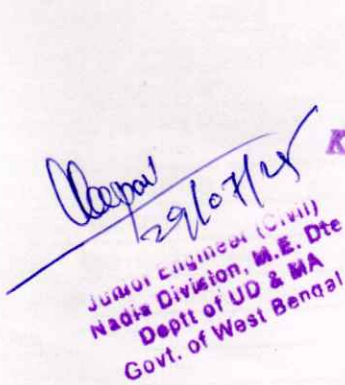 29/07/25
K
Junior Engineer (Civil)
Nadia Division, M.E. Dte
Deptt of UD & MA
Govt. of West Bengal